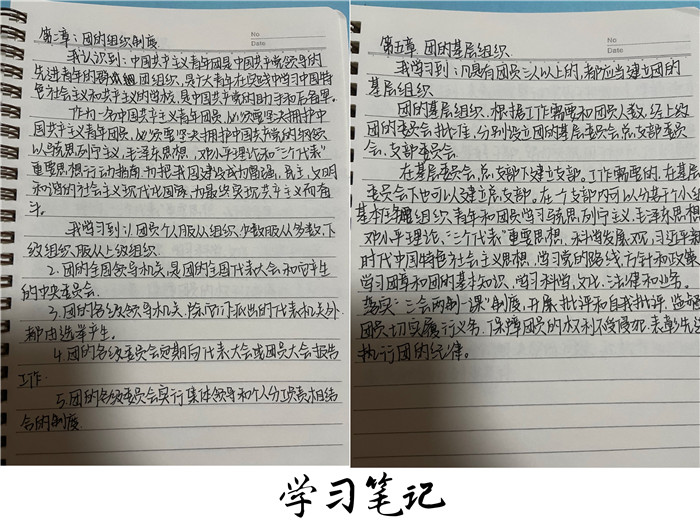 No
Date
第二章：团的组织制度
我认识到：中国共产主义青年团是中国共产党领导的
先进青年的群团组织，是广大青年在实践中学习中国特
色社会主义和共产主义的学校，是中国共产党的助手和后备军。
作为一名中国共产主义青年团员，必须要坚决拥护中
国共产主义青年团，必须要坚决拥护中国共产党的纲领
以马克思列宁主义，毛泽东思想，邓小平理论和“三个代表”
重要思想行动指南，力把我国建设成为富强，民主，文明
和谐的社会主义现代化国家，为最终实现共产主义而奋
斗。
我学习到：1.团员个人服从组织，少数服从多数，下
级组织服从上级组织.
2.团的全国领导机关，是团的全国代表大会和它产生
的中央委员会.
3.团的各级领导机关，除它们派出的代表机关外
都由选举产生。
4.团的各级委员会定期向代表大会或团员大会报告
工作.
5.团的各级委员会实行集体领导和个人分工负责相结
合的制度
No
Date
第五章 团的基层组织.
我学习到：凡是有团员三人以上的，都应当建立团的
基层组织.
团的基层组织，根据工作需要和团员人数，经上级
团的委员会批准，分别设立团的基层委员会，总支部委员
会，支部委员会.
在基层委员会，总支部下建立支部。工作需要的，在基层
委员会下也可以建立总支部。在一个支部内可以分若干个小组
基本任务组织青年和团员学习马克思，列宁主义，毛泽东思想
邓小平理论，“三个代表”重要思想，科学发展观，习近平新
时代中国特色社会主义思想，学习党的路线方针和政策，
学习团章和团的基本知识，学习科学，文化，法律和业务。
落实“三会两制一课”制度，开展批评和自我批评，监督
团员切实履行义务，保障团员的权利不受侵犯，表彰先进
执行团的纪律。
学习笔记